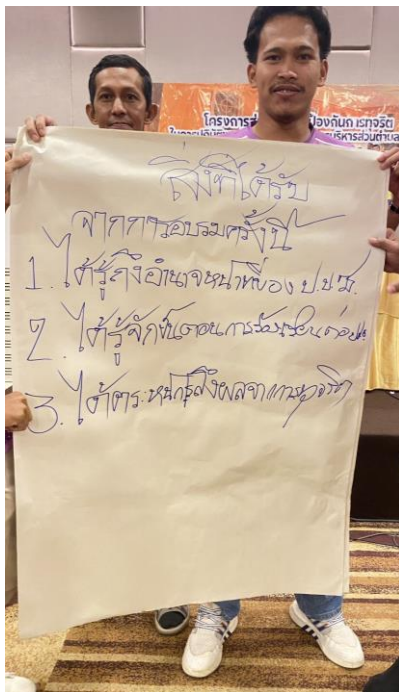 โครงการส่ ป้องกันก รทุจริต
ในการปฏิบัติ ริหารส่วนตำบล
สิ่งที่ได้รับ
จากการอบรมครั้งนี้
1. ได้รู้ถึงอำนาจหน้าที่ของ ป.ป.ช.
2. ได้รู้จักขั้นตอนการร้องเรียนต่อ
3. ได้ตระหนักรู้ถึงผลจากการทุจริต